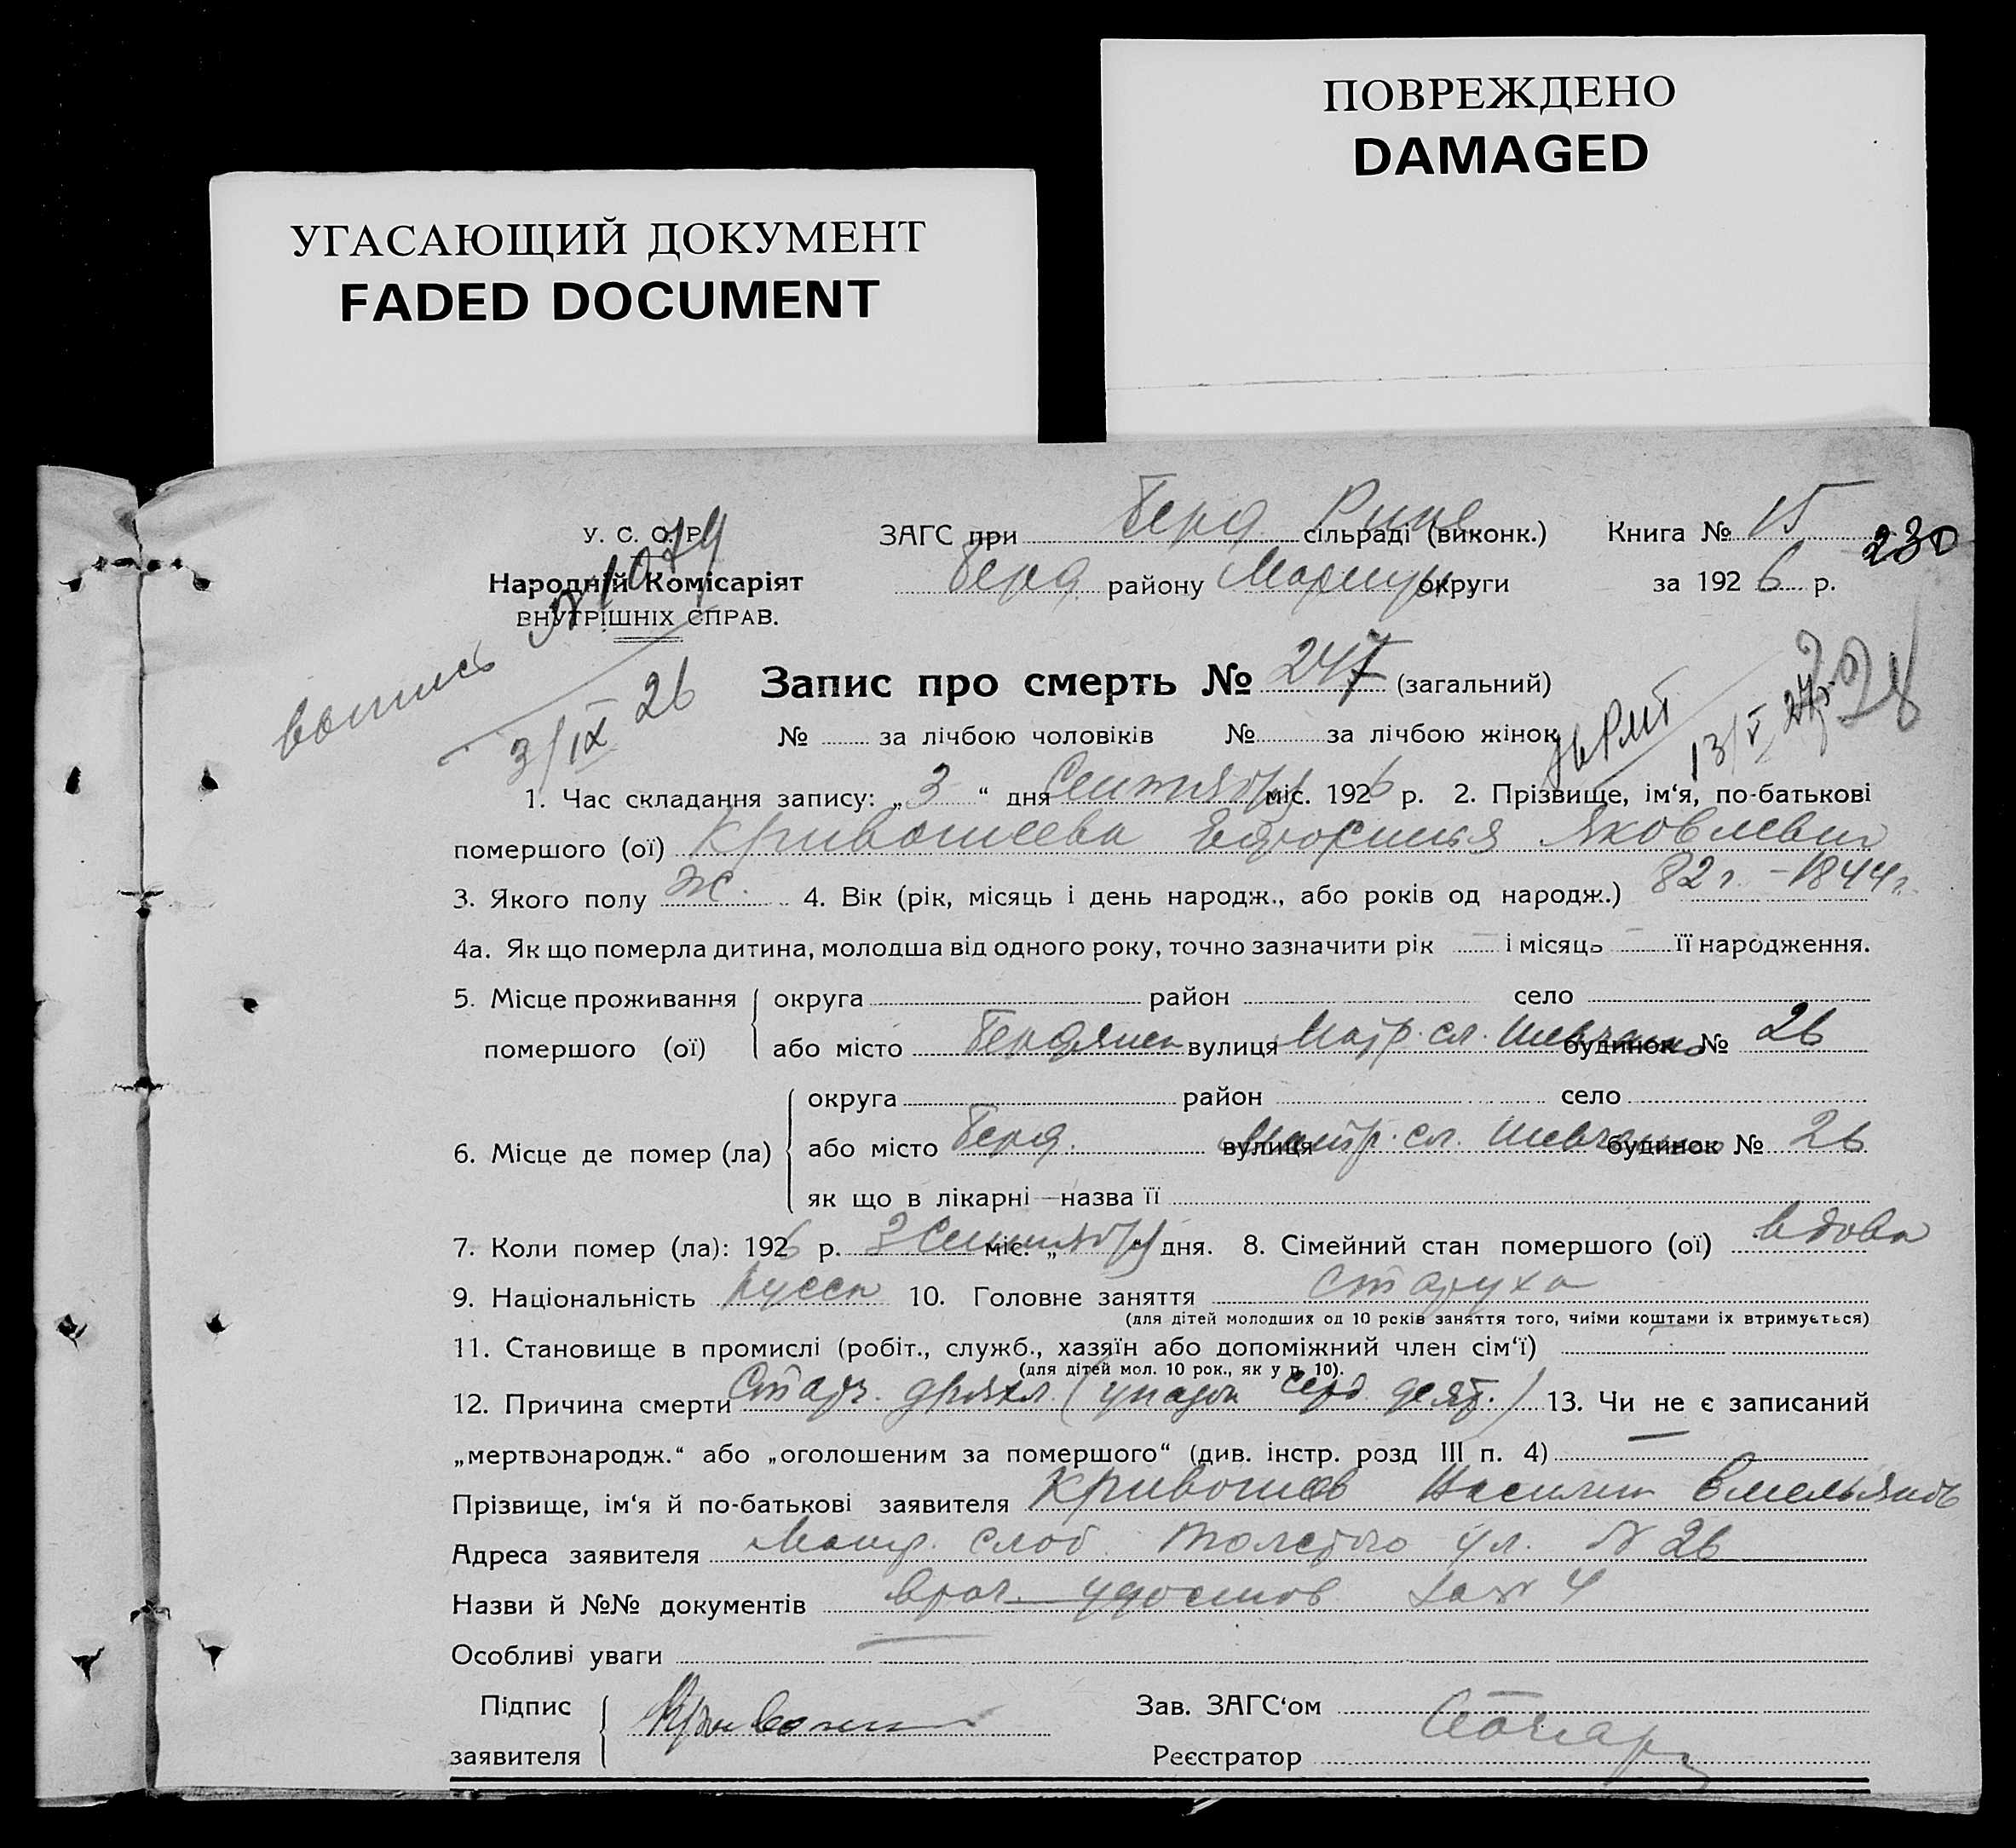 ПОВРЕЖДЕНО
DAMAGED
УГАСАЮЩИЙ ДОКУМЕНТ
FADED DOCUMENT
У. С. С. Р. ЗАГС при Берд сільраді (виконк.) Книга № 15
230
Народній Комісаріят Берд району Мариуп округи за 1926 р.
ВНУТРІШНІХ СПРАВ.
№ 1079
3/IX 26
Запис про смерть № 247 (загальний)
№ за лічбою чоловіків № за лічбою жінок
13/V 27
1. Час складання запису: „3“ дня Сентября міс. 1926 р. 2. Прізвище, ім‘я, по-батькові
помершого (ої) Кривошеева Яковлевна
3. Якого полу ж. 4. Вік (рік, місяць і день народж., або років од народж.) 82 г. - 1844 г.
4а. Як що померла дитина, молодша від одного року, точно зазначити рік — і місяць — її народження.
5. Місце проживання округа район село
помершого (ої) або місто Бердянск вулиця сл. Шевченко будинок № 26
округа район село
6. Місце де помер (ла) або місто Берд. вулиця сл. Шевченко будинок № 26
як що в лікарні—назва її
7. Коли помер (ла): 1926 р. 3 Сентября міс. „ “ дня. 8. Сімейний стан помершого (ої) вдова
9. Національність русск 10. Головне заняття старуха
(для дітей молодших од 10 років заняття того, чиїми коштами їх втримується)
11. Становище в промислі (робіт., служб., хазяїн або допоміжний член сім‘ї)
(для дітей мол. 10 рок., як у п. 10).
12. Причина смерти Старч. дряхл. (упадок серд. деят.) 13. Чи не є записаний
„мертвонародж.“ або „оголошеним за помершого“ (див. інстр. розд III п. 4) —
Прізвище, ім‘я й по-батькові заявителя Кривошеев
Адреса заявителя слоб. Толстого ул. № 26
Назви й №№ документів врач. удостов за № 4
Особливі уваги —
Підпис Зав. ЗАГС‘ом
заявителя Реєстратор